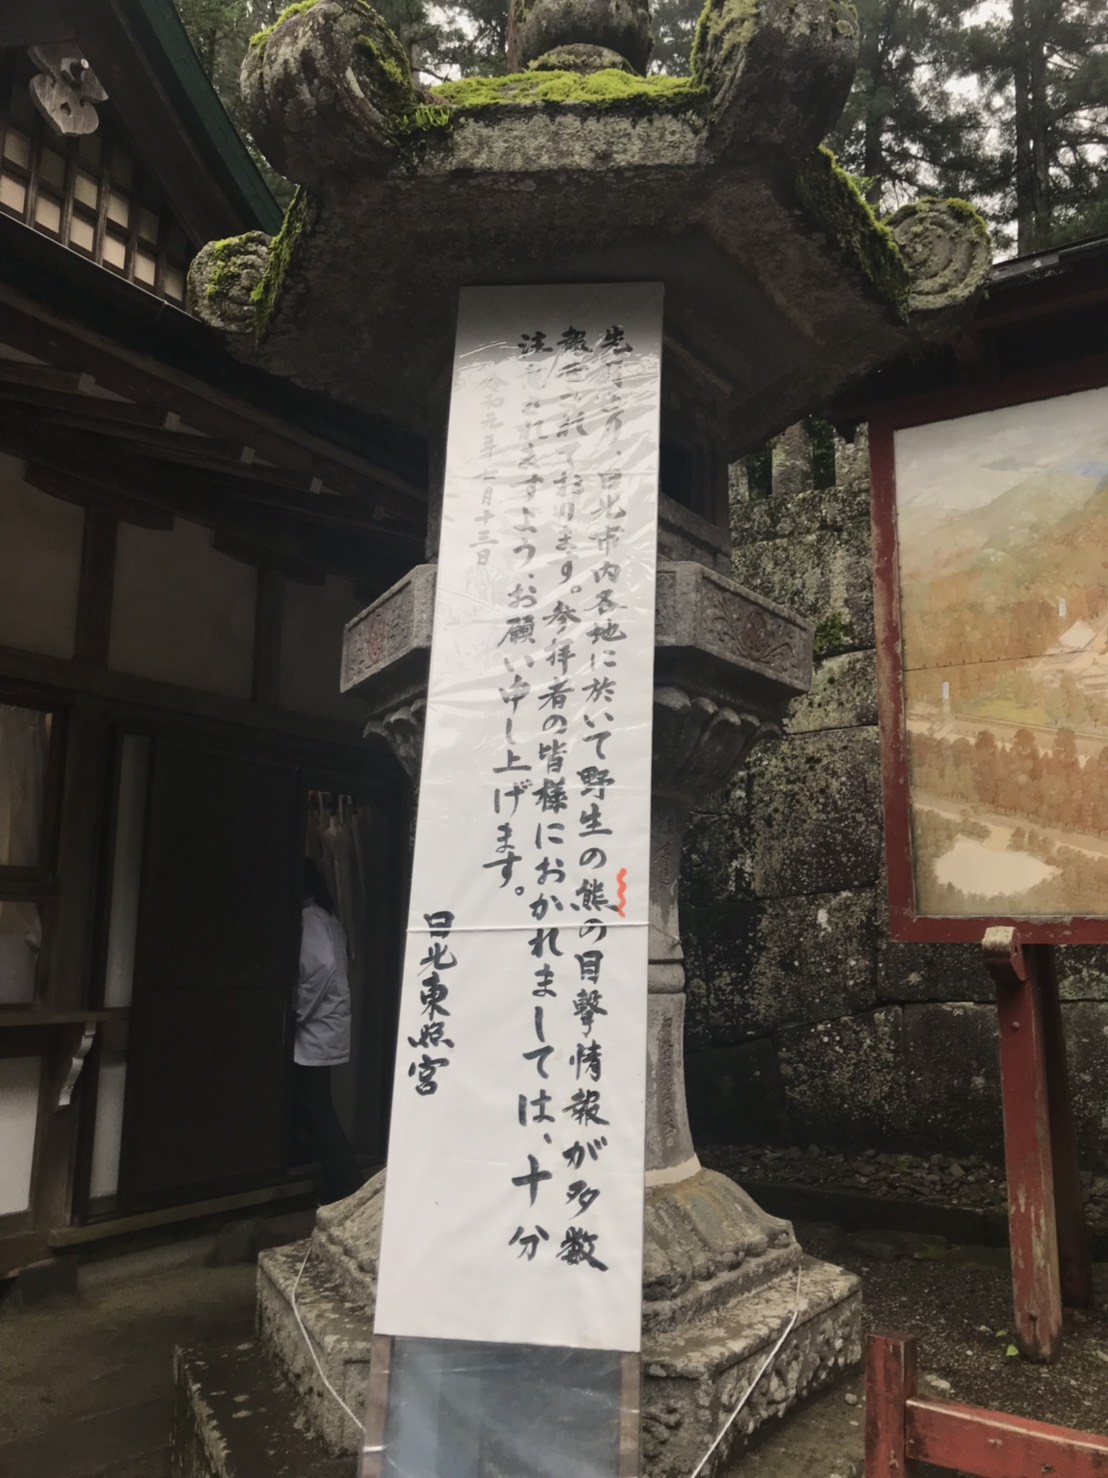 先月より、日光市内各地に於いて野生の熊の目撃情報が多数
報告されております。参拝者の皆様におかれましては、十分
注意されますよう、お願い申し上げます。
令和元年七月十三日
日光東照宮